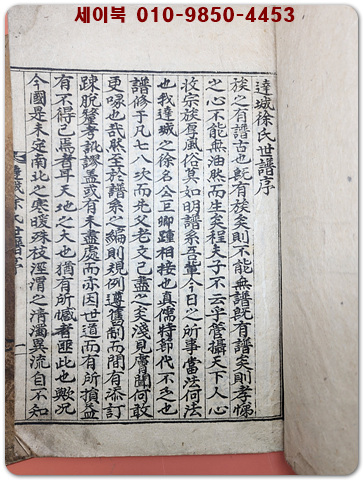 세이북 010-9850-4453
達城徐氏世譜序
族之有譜古也旣有族矣則不能無譜旣有譜矣則孝悌
之心不能無油然而生矣程夫子不云乎管攝天下人心
收宗族厚風俗莫如明譜系吾輩今日之所事當法何法
也我達城之徐名公巨卿踵相接也眞儒特節代不乏也
譜修于凡七八次而先父老文已盡之矣淺見膚聞何敢
更喙也哉然至於譜系之編則規例遵舊制而間有添訂
疎脫釐考訛謬盖或有未盡處而亦因世道而有所損益
有不得已焉者耳天地之大也猶有所憾者匪此也歟況
今國是未定南北之寒暖殊枝涇渭之淸濁異流自不知
達城徐氏世譜序